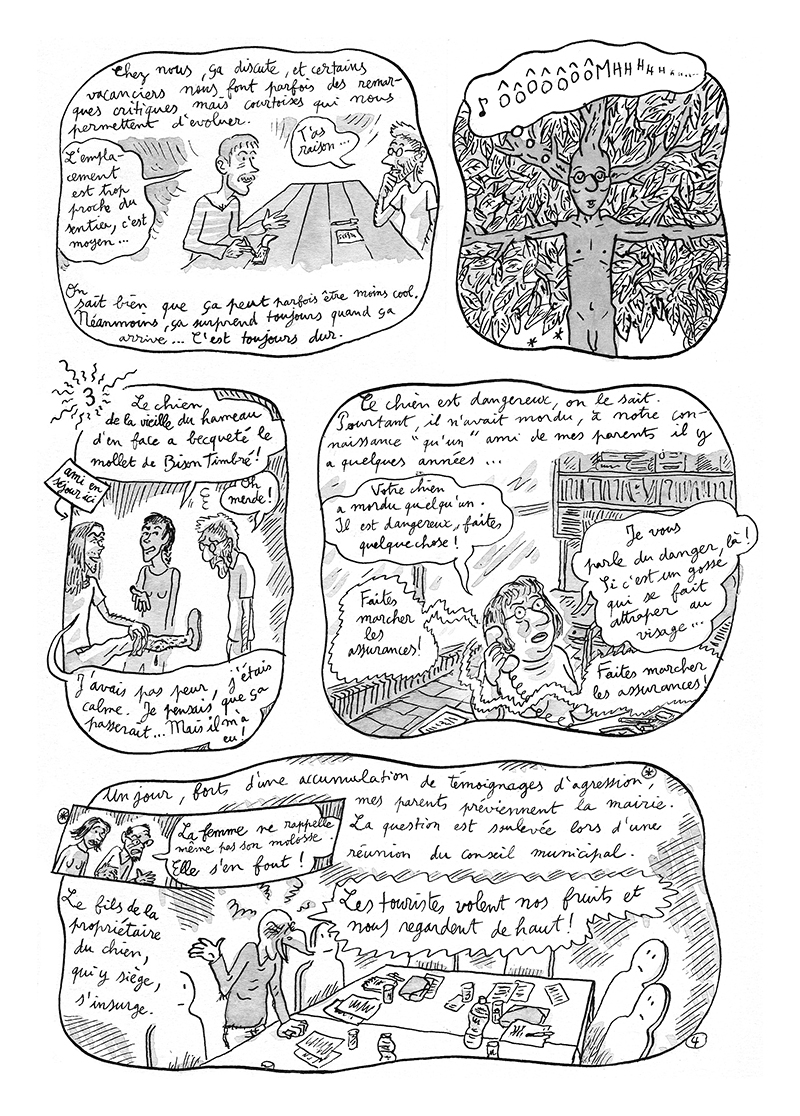 Chez nous, ça discute, et certains
vacanciers nous font parfois des remar-
ques critiques mais courtoises qui nous
permettent d'évoluer.
L'empla-
cement
est trop
proche du
sentier, c'est
moyen...
T'as
raison...
On
sait bien que ça peut parfois être moins cool.
Néanmoins, ça surprend toujours quand ça
arrive... C'est toujours dur.
ÔÔÔÔÔÔÔMHHHHH......
* *
3
Le chien
de la vieille du hameau
d'en face a becqueté le
mollet de Bison Timbré!
ami en
séjour ici
Oh
merde!
J'avais pas peur, j'étais
calme. Je pensais que ça
passerait... Mais il m'a
eu!
Ce chien est dangereux, on le sait.
Pourtant, il n'avait mordu, à notre con-
naissance "qu'un" ami de mes parents il y
a quelques années...
Votre chien
a mordu quelqu'un.
Il est dangereux, faites
quelque chose!
Faites
marcher
les
assurances!
Je vous
parle du danger, là!
Si c'est un gosse
qui se fait
attraper au
visage...
Faites marcher
les assurances!
Un jour, forts d'une accumulation de témoignages d'agression,*
mes parents préviennent la mairie.
La question est soulevée lors d'une
réunion du conseil municipal.
*
La femme ne rappelle
même pas son molosse.
Elle s'en fout!
Le fils de la
propriétaire
du chien,
qui y siège,
s'insurge.
Les touristes volent nos fruits et
nous regardent de haut!
4